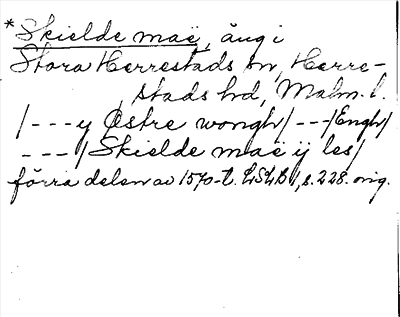 * Skielde maë, äng i
Stora Herrestads sn, Herre-
stads hd, Malm. l.
/---y Østre wongh/---/Engh/
---/Skielde maë ij les/
förra delen av 1570-t. LSLB 1, s. 228. orig.